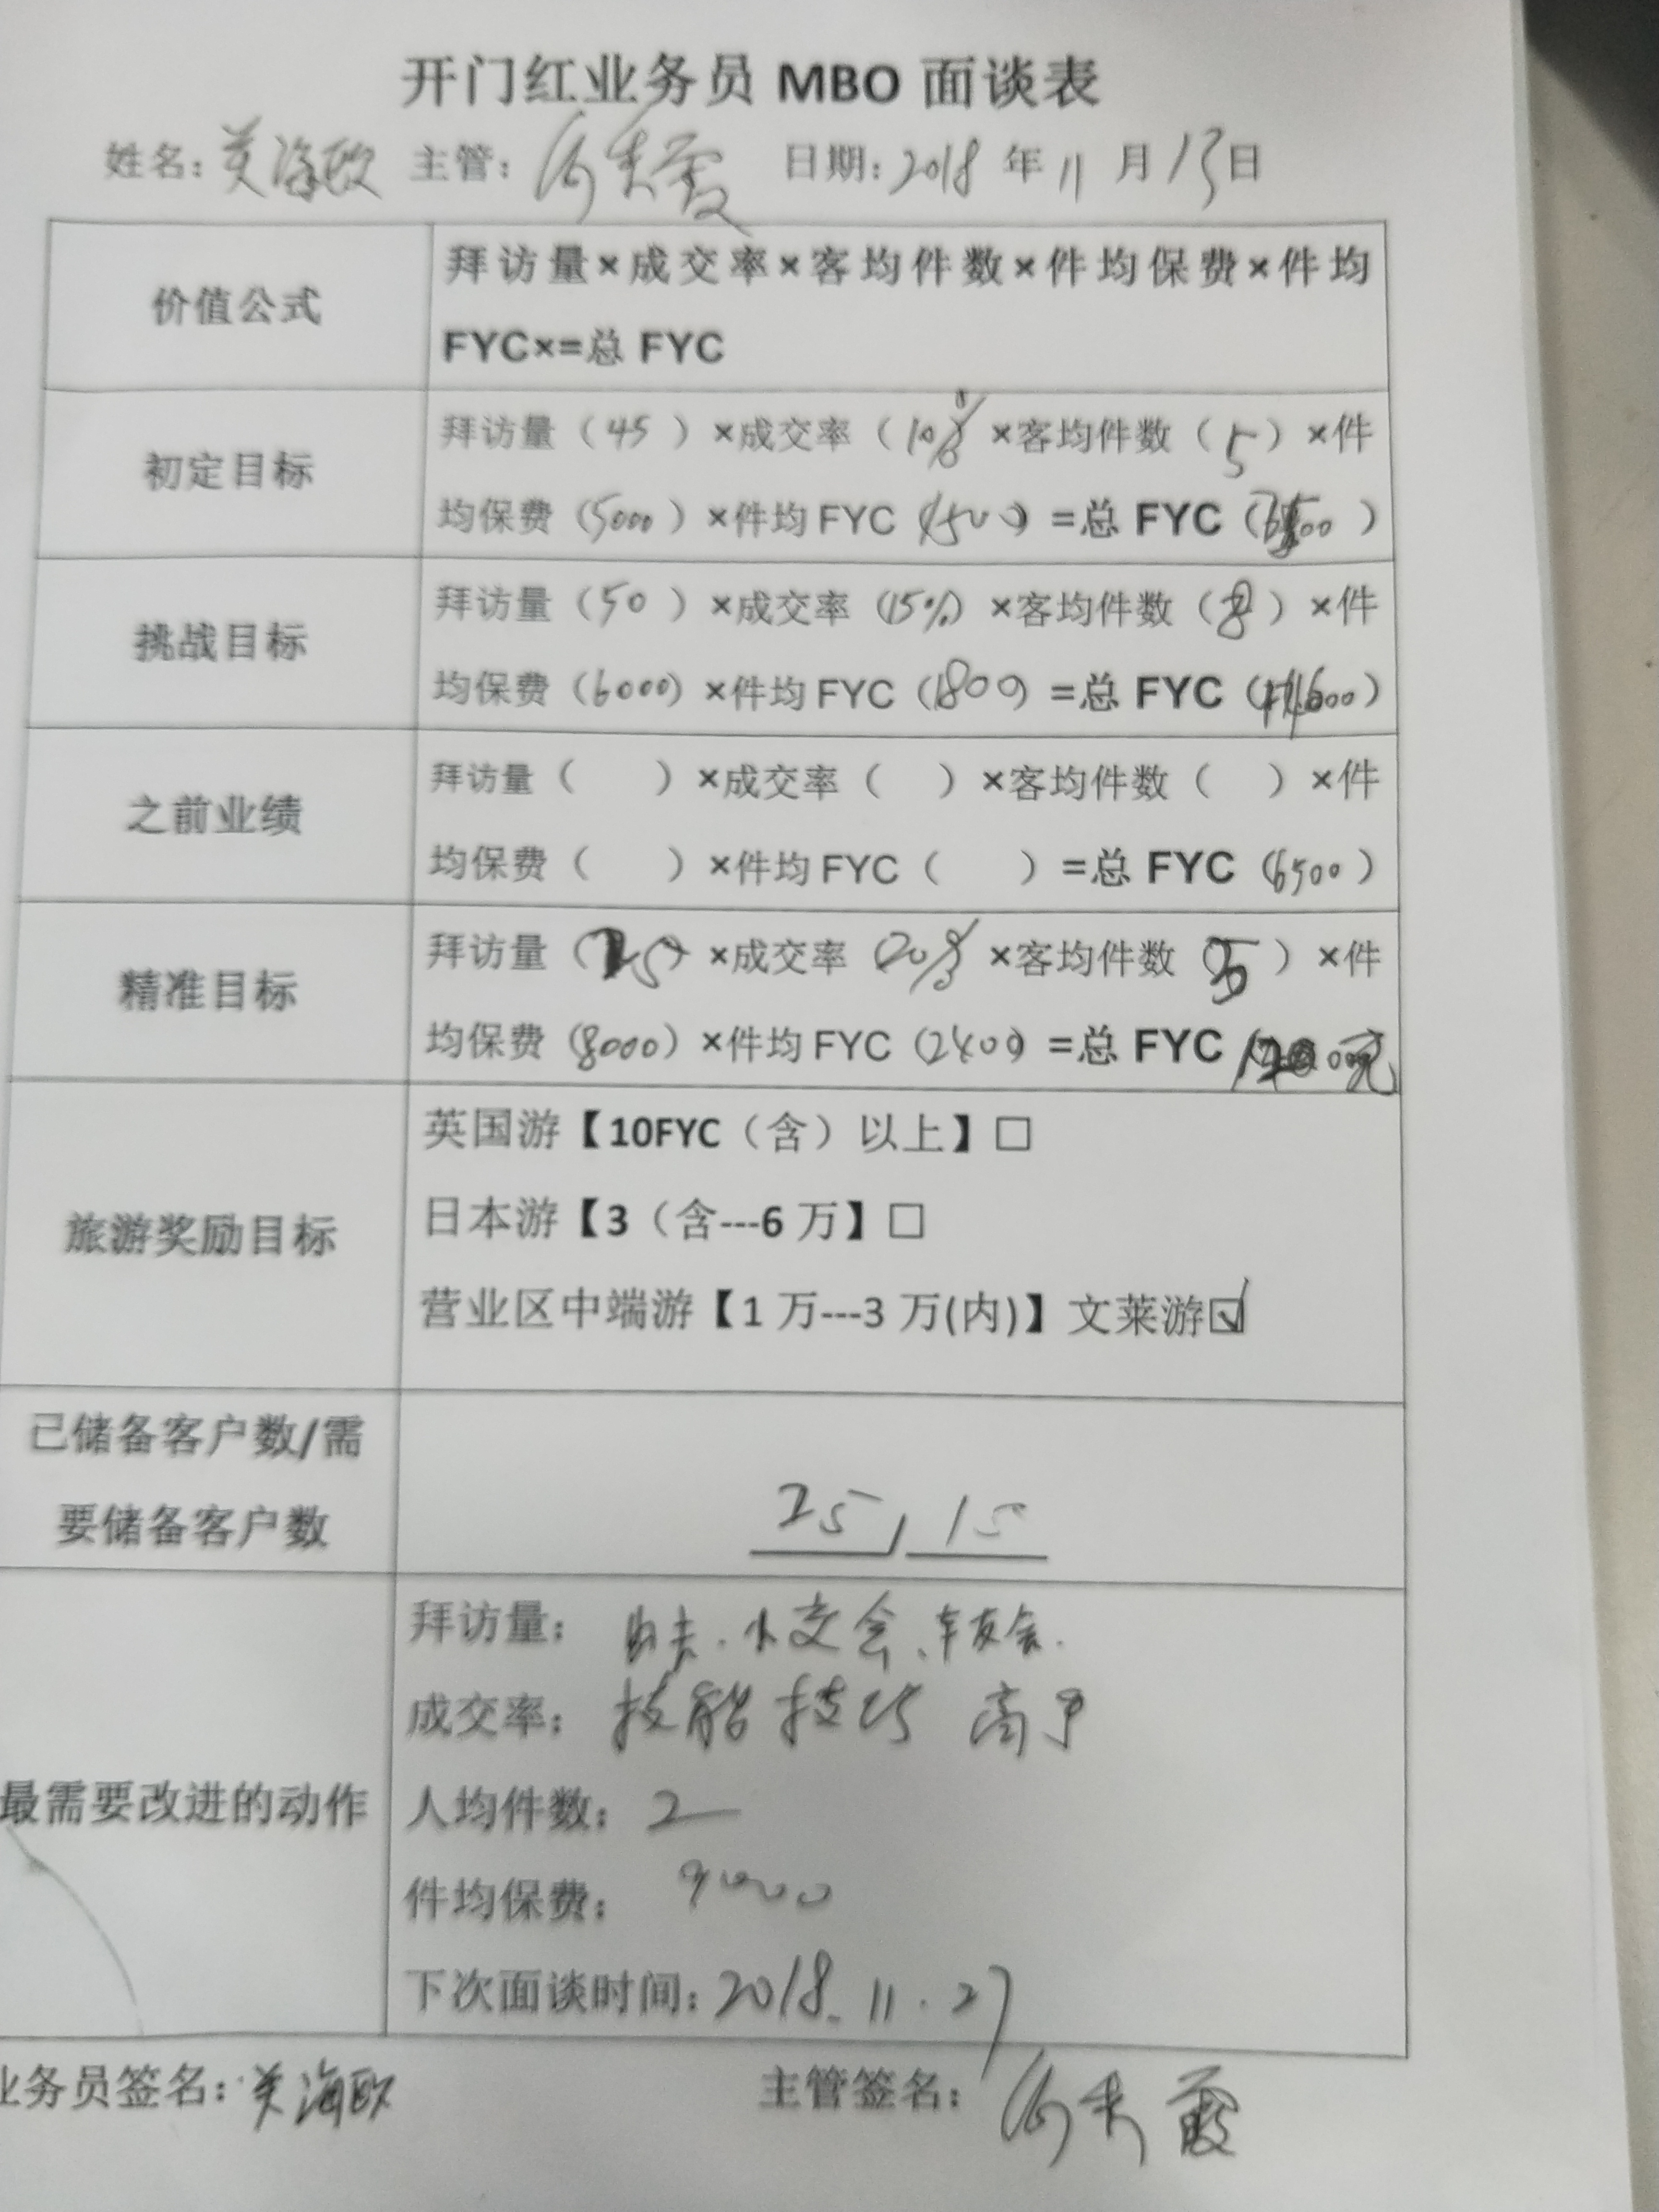 开门红业务员 MBO 面谈表
姓名: 海欧 主管: 霞 日期: 2018 年 11 月 13 日
价值公式
拜访量×成交率×客均件数×件均保费×件均
FYC×=总 FYC
初定目标
拜访量（45）×成交率（10% ×客均件数（5）×件
均保费（5000）×件均 FYC（1500）=总 FYC（ ）
挑战目标
拜访量（50）×成交率（15%）×客均件数（8）×件
均保费（6000）×件均 FYC（1800）=总 FYC（ ）
之前业绩
拜访量（ ）×成交率（ ）×客均件数（ ）×件
均保费（ ）×件均 FYC（ ）=总 FYC（6500）
精准目标
拜访量（ ）×成交率（20% ×客均件数（5）×件
均保费（8000）×件均 FYC（2400）=总 FYC
旅游奖励目标
英国游【10FYC（含）以上】□
日本游【3（含---6 万】□
营业区中端游【1 万---3 万(内)】文莱游☑
已储备客户数/需
要储备客户数
25 / 15
最需要改进的动作
拜访量： 小交会、车友会.
成交率： 技能 技巧
人均件数：2
件均保费：
下次面谈时间：2018.11.27
业务员签名： 海欧 主管签名： 霞